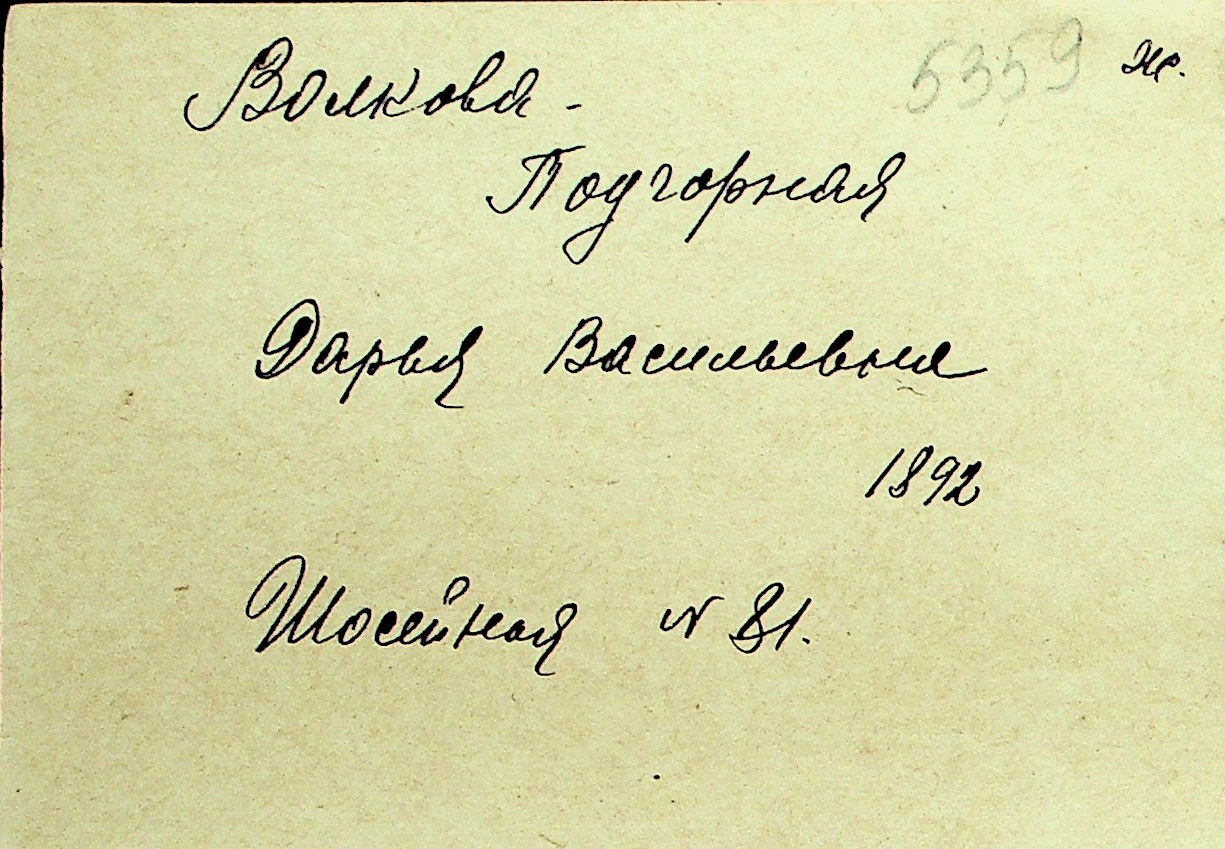 5359 ж.
Волкова -
Подгорная
Дарья Васильевна
1892
Шосейная № 81.